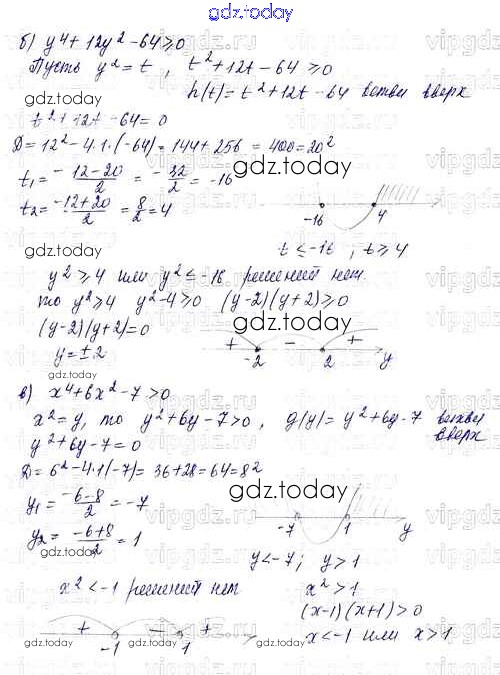 gdz.today
б) y⁴+12y²-64⩾0
Пусть y²=t, t²+12t-64⩾0
gdz.today
h(t)=t²+12t-64 ветви вверх
t²+12t-64=0
D=12²-4·1·(-64)=144+256=400=20²
gdz.today
t₁=(-12-20)/2=-32/2=-16
t₂=(-12+20)/2=8/2=4
-16 4
gdz.today
t⩽-16, t⩾4
y²⩾4 или y²⩽-16 решений нет
то y²⩾4 y²-4⩾0 (y-2)(y+2)⩾0
(y-2)(y+2)=0
gdz.today
y=±2
+ - +
-2 2 y
gdz.today
в) x⁴+6x²-7>0
x²=y, то y²+6y-7>0, g(y)=y²+6y-7 ветви вверх
y²+6y-7=0
D=6²-4·1(-7)=36+28=64=8²
gdz.today
y₁=(-6-8)/2=-7
y₂=(-6+8)/2=1
-7 1 y
gdz.today
y<-7; y>1
x²<-1 решений нет
x²>1
(x-1)(x+1)>0
+ - +
-1 1
x<-1 или x>1
gdz.today gdz.today gdz.today